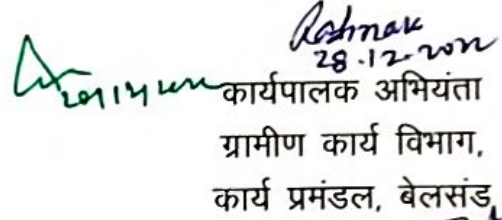 28.12.2022
कार्यपालक अभियंता
ग्रामीण कार्य विभाग,
कार्य प्रमंडल, बेलसंड